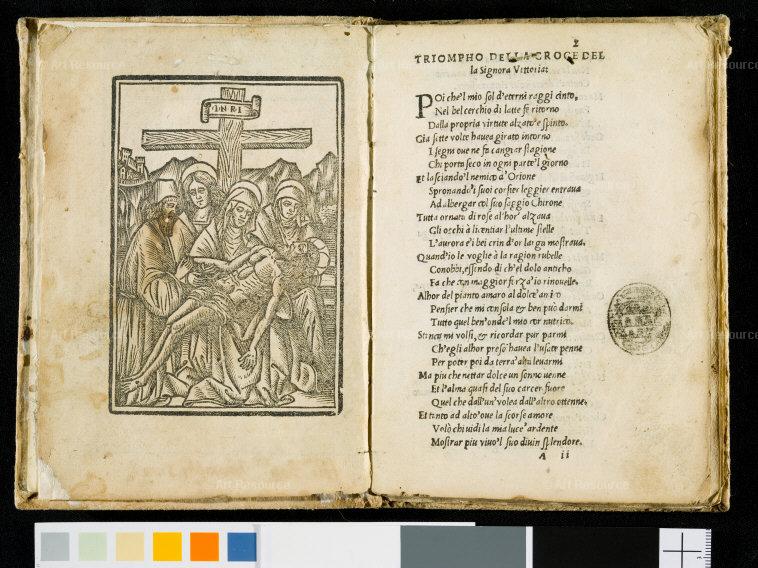 INRI
2
TRIOMPHO DELLA CROCE DEL
la Signora Vittoria:
POi che'l mio sol d'eterni raggi cinto,
Nel bel cerchio di latte fe ritorno
Dalla propria virtute alzato e spinto.
Gia sette volte hauea girato intorno
I segni oue ne fa cangiar stagione
Chi porta seco in ogni parte'l giorno
Et lasciando'l nemico d'Orione
Spronando'i suoi corsier leggier entraua
Ad albergar col suo saggio Chirone
Tutta ornata di rose al'hor' alzaua
Gli occhi à licentiar l'ultime stelle
L'aurora e'i bei crin d'or larga mostraua.
Quand'io le voglie à la ragion rubelle
Conobbi, essendo di ch'el dolo anticho
Fa che con maggior forza'io rinouelle.
Alhor del pianto amaro al dolce amico
Pensier che mi consola & ben può darmi
Tutto quel ben'onde'l mio cor nutrico.
Stanca mi volsi, & ricordar pur parmi
Ch'egli alhor preso hauea l'usate penne
Per poter poi da terra'alta leuarmi
Ma piu che nettar dolce un sonno uenne
Et l'alma quasi del suo carcer fuore
Quel che dall'un'volea dall'altro ottenne.
Et tanto ad alto'oue la scorse amore
Volò chi uidi la mia luce'ardente
Mostrar piu viuo'l suo diuin splendore.
A ii
Art Resource